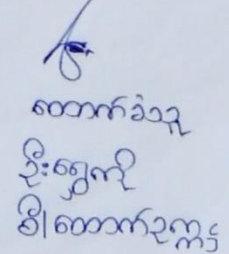 ထောက်ခံသူ
ဦးရွှေကို
စီ၊ထောက်ဥက္ကဋ္ဌ